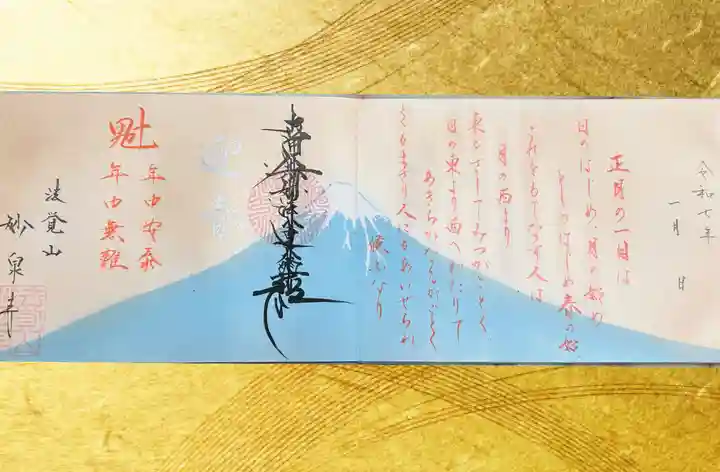 令和七年
一月 日
正月の一日は
日のはじめ、月の始め
としのはじめ春の始
これをもてなす人は
月の西より
東をさしてみつがごとく
日の東より西へわたりて
あきらかなるがごとく
とくもまさり人にもあいせられ
候なり
南無妙法蓮華経
迎春
年中安泰
年中無難
法覚山
妙泉寺